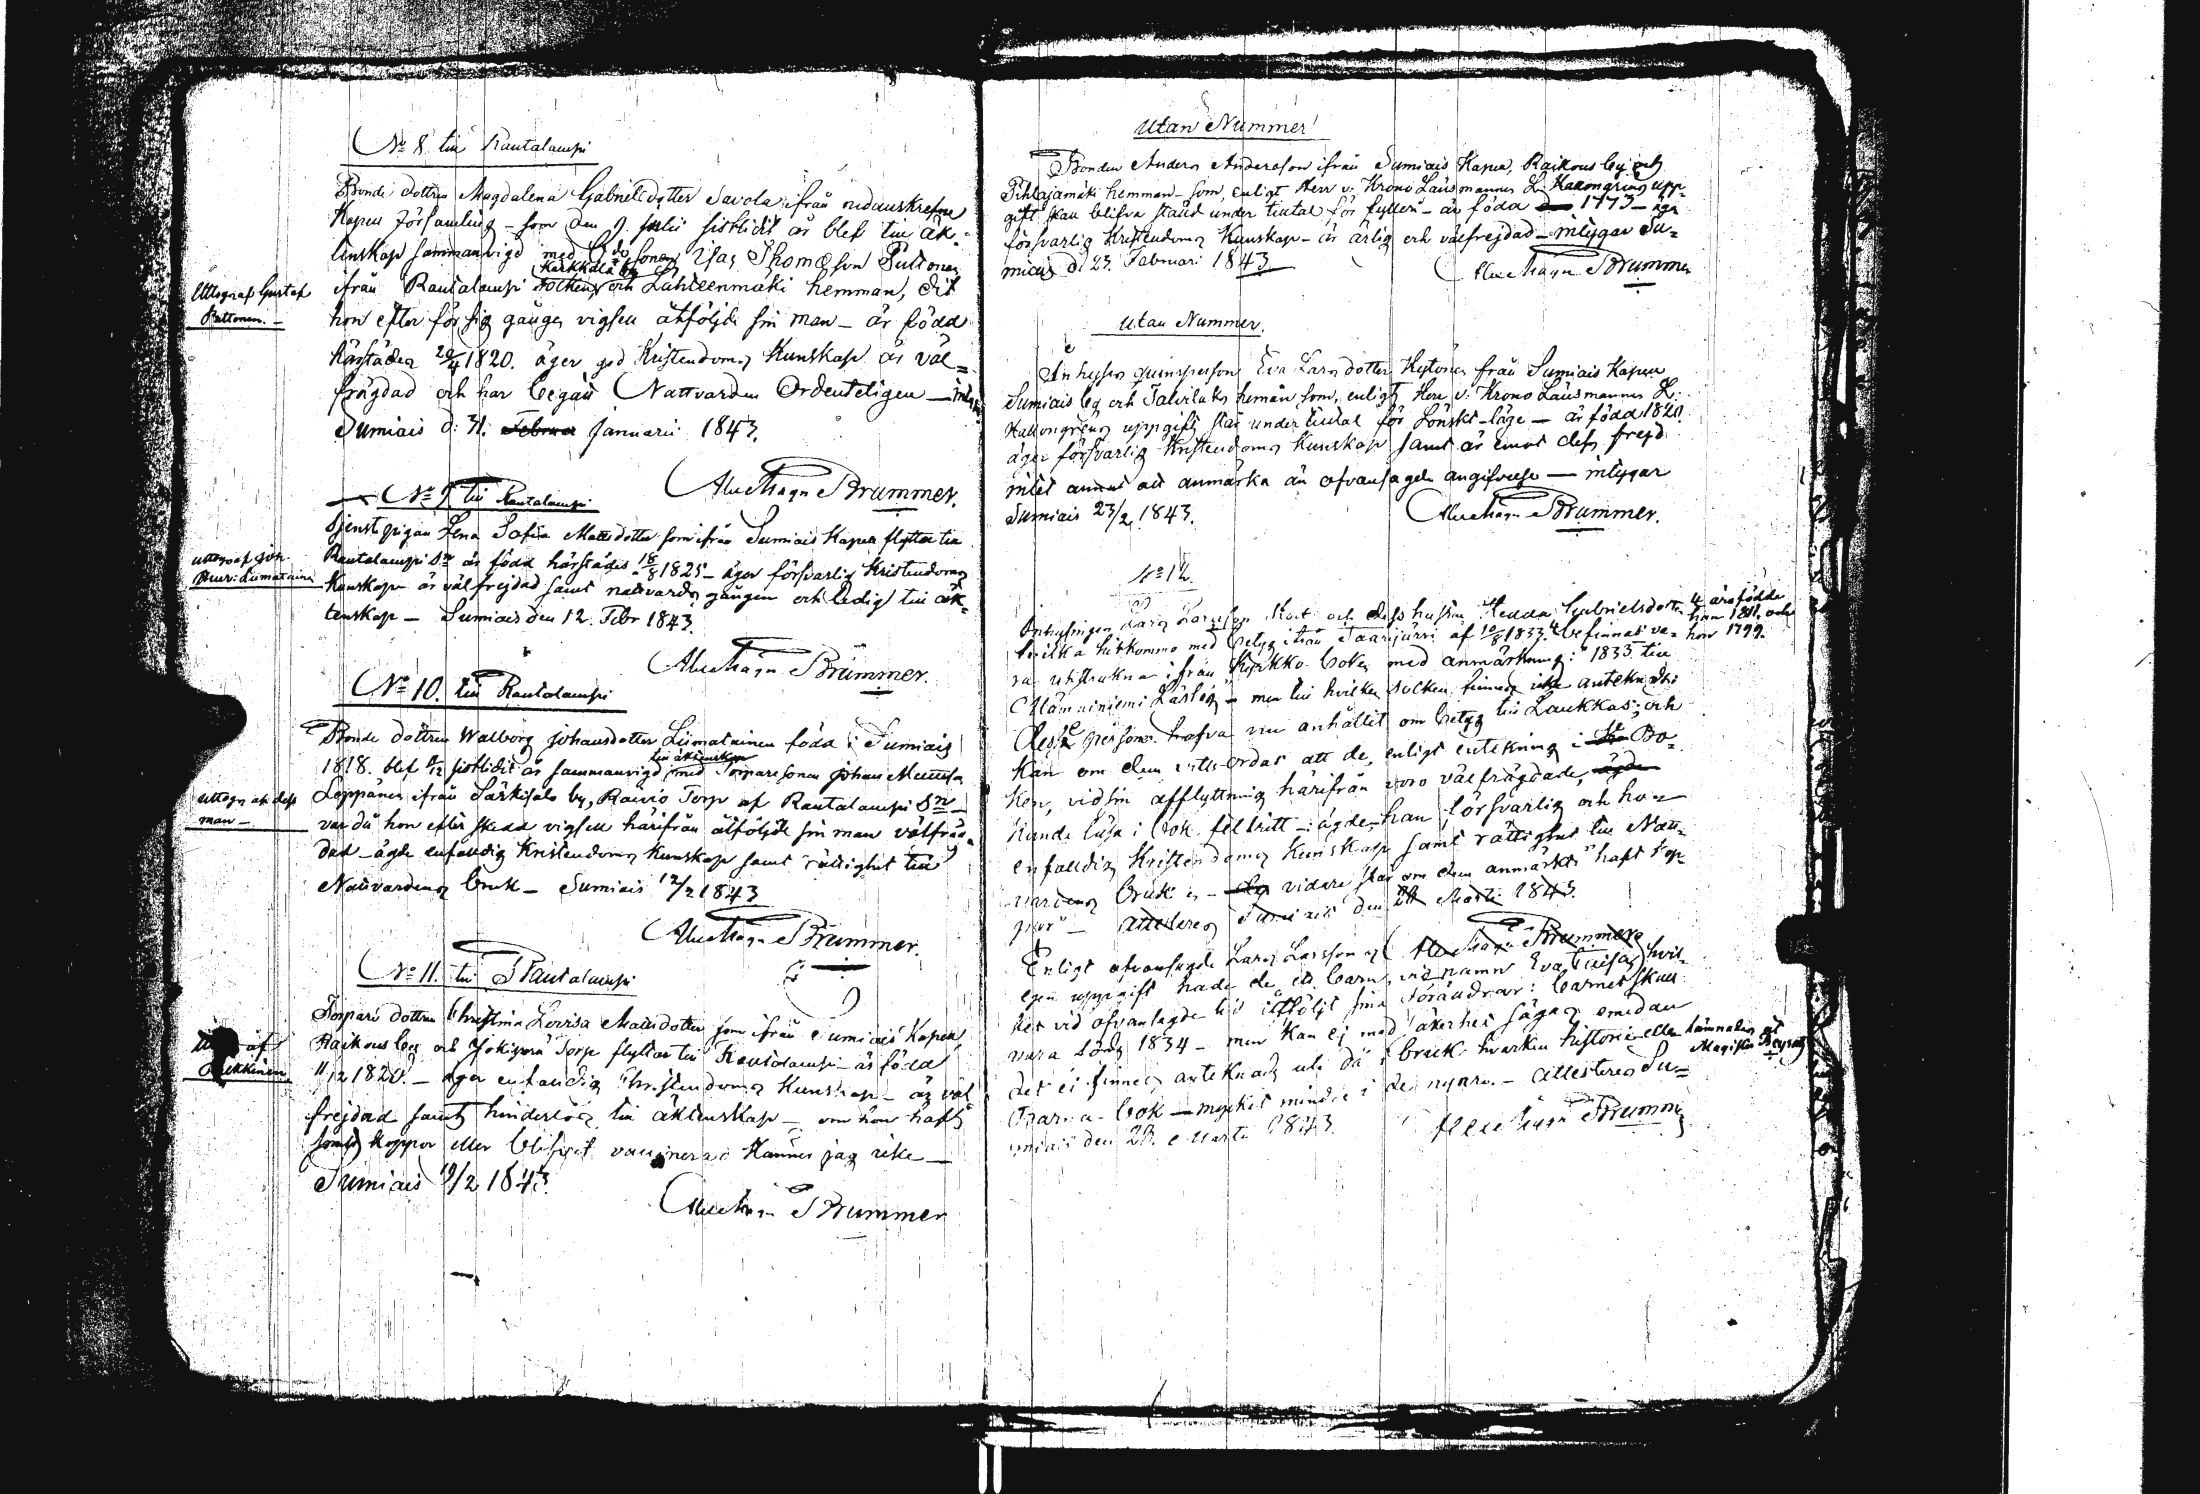 No 8. till Rautalampi
Bonde dottren Magdalena Gabrielsdotter Savola ifrån nedanskrefne
Kapell församling – som den 9. Julii sistlidit år blef till äk-
tenskap sammanvigd med Bde Sonen Isac Thomæson Puttonen
Kärkkälä by
Uttograf Gustaf
Puttonen. –
ifrån Rautalampi Socken och Lähteenmäki hemman, dit
hon efter för sig gången vigsell åtföljde sin man – är född
härstädes 20/4 1820. äger god Kristendoms Kunskap är väl=
frägdad och har begått Nattvarden Ordenteligen – intyg.
Sumiais d: 31. Februar Januarii 1843.
Alex Magn Brummer.
No 9. till Rautalampi
Tjenst pigan Lena Sofia Mattsdotter som ifrån Sumiais Kapell flyttar till
uttograf Joh.
Henr: Liimatainen
Rautalampi Sn är födda härstädes 18/8 1825 – äger försvarlig Kristendoms
Kunskap är välfrejdad samt nattvards gången och ledig till äk-
tenskap – Sumiais den 12. Febr 1843.
Alex Magn Brummer.
No 10. till Rautalampi
Bonde dottren Walborg Johansdotter Liimatainen född i Sumiais
till äktenskap
1818. blef /12 sistlidit år sammanvigd med Torpare sonen Johan
uttogs af dess
man –
Leppänen ifrån Särkisalo by, Raivio Torp af Rautalampi Sn
var då hon efter skedd vigsell härifrån åtföljde sin man välfräg-
dad – ägde enfalldig Kristendoms Kunskap samt rättighet till
Nattvardens bruk – Sumiais 12/2 1843
Alex Magn Brummer.
No 11. till Rautalampi
Torpare dottren Christina Lovisa Mattsdotter som ifrån Sumiais Kapell,
af
Raikous by och Jokiperä Torp flyttar till Rautalampi – är födda
11/12 1820. – äger enfaldig Christendoms Kunskap – är väl
frejdad samt hinderlös till äktenskap – om hon haft
koppor eller blifvit vaccinerad Känner jag icke –
Sumiais 19/2 1843.
Alex Magn Brummer
Utan Nummer
Bonden Anders Andersson ifrån Sumiais Kapell, Raikous by och
Pihlajamäki hemman – som, enligt Herr v: Krono Länsmannen L. Kallongrens upp-
gift skall blifva ställd under tiltal för fylleri – är född 1773 – äger
försvarlig Kristendoms Kunskap – är ärlig och välfrejdad – intygar Su=
miais d. 23. Februari 1843
Alex Magn Brummer
Utan Nummer.
Inhyses qvinsperson Eva Larsdotter Hytönen från Sumiais Kapell
Sumiais by och Talvilaks heman som, enligt Herr v: Krono Länsmannen L:
Kallongrens uppgift står under tiltal för Lönskt-läge – är född 1820
äger försvarlig Kristendoms Kunskap samt är emot dess frejd
intet annat att anmärka än ofvansagde angifvelse – intygar
Sumiais 23/2 1843.
Alex Magn Brummer.
No 12.
Inhysingen Lars Larsson Kost och dess hustru Hedda Gabrielsdotter äro födde
han 1801, och
hon 1799.
hvilka hitkommo med betyg ifrån Saarijärvi af 10/8 1833. befinnas va-
ra utstrukna ifrån Kyrkko-boken med anmärkning: "1833 till
– men till hvilken Socken finnes icke anteknadt:
Desse personer hafva nu anhållit om betyg till Laukkas; och
kan om dem vitts-ordas att de, enligt antekning i Bo-
ken, vid sin afflyttning härifrån voro välfrägdade,
kunde läsa i bok fel fritt – ägde – han försvarlig och hon
enfalldig Kristendoms Kunskap samt rättighet till Natt-
vardens bruk – vidare står om dem anmärkt "haft kop-
por" – attesteres Sumiais den 28 Martii 1843.
Alex Magn Brummer
Enligt ofvansagde Lars Larssons hvil-
egen uppgift hade de ett barn vid namn Eva Lovisa,
ket vid ofvansagde tid åtföljt sina Föräldrar: barnet skall
vara född 1834 – men kan ej med säkerhet sägas emedan
det ej finnes anteknadt uti då i bruk hvarken historie eller
Barna-bok – mycket mindre i de nyare. – attesteres Su=
miais den 28. Martii 1843.
Alex Magn Brummer